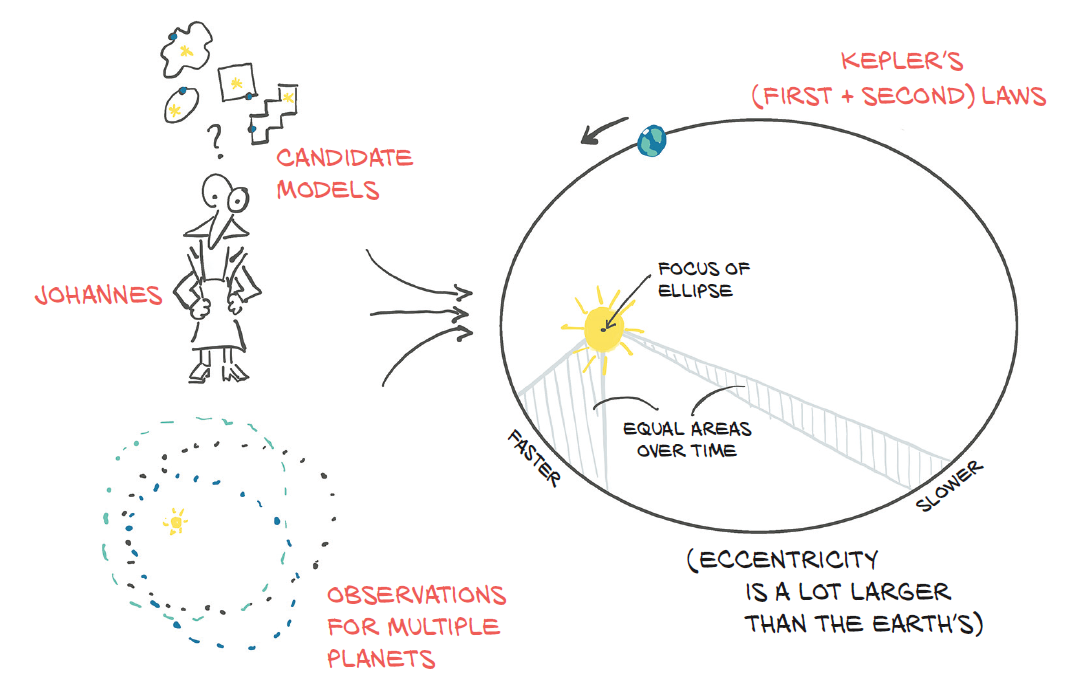 ?
CANDIDATE
MODELS
JOHANNES
OBSERVATIONS
FOR MULTIPLE
PLANETS
KEPLER'S
(FIRST + SECOND) LAWS
FOCUS OF
ELLIPSE
EQUAL AREAS
OVER TIME
FASTER
SLOWER
(ECCENTRICITY
IS A LOT LARGER
THAN THE EARTH'S)